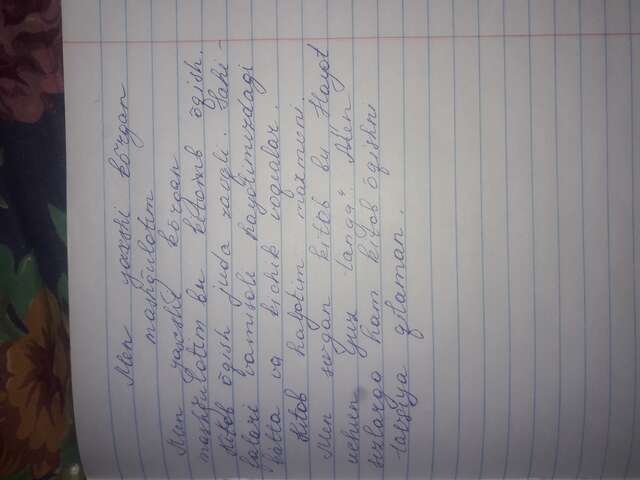 Men yaxshi ko'rgan
mashg'ulotim
Men yaxshi ko'rgan
mashg'ulotim bu kitomb õqish.
Kitob õqish juda zavqli. Saki-
falari vamisoli hayotimizdagi
katta va kichik voqialar.
Kitob hayotim mazmuni.
Men sevgan kitob bu Hayot
uchun Yuz tanga". Men
sizlarga ham kitob õqishni
tafsiya qilaman.